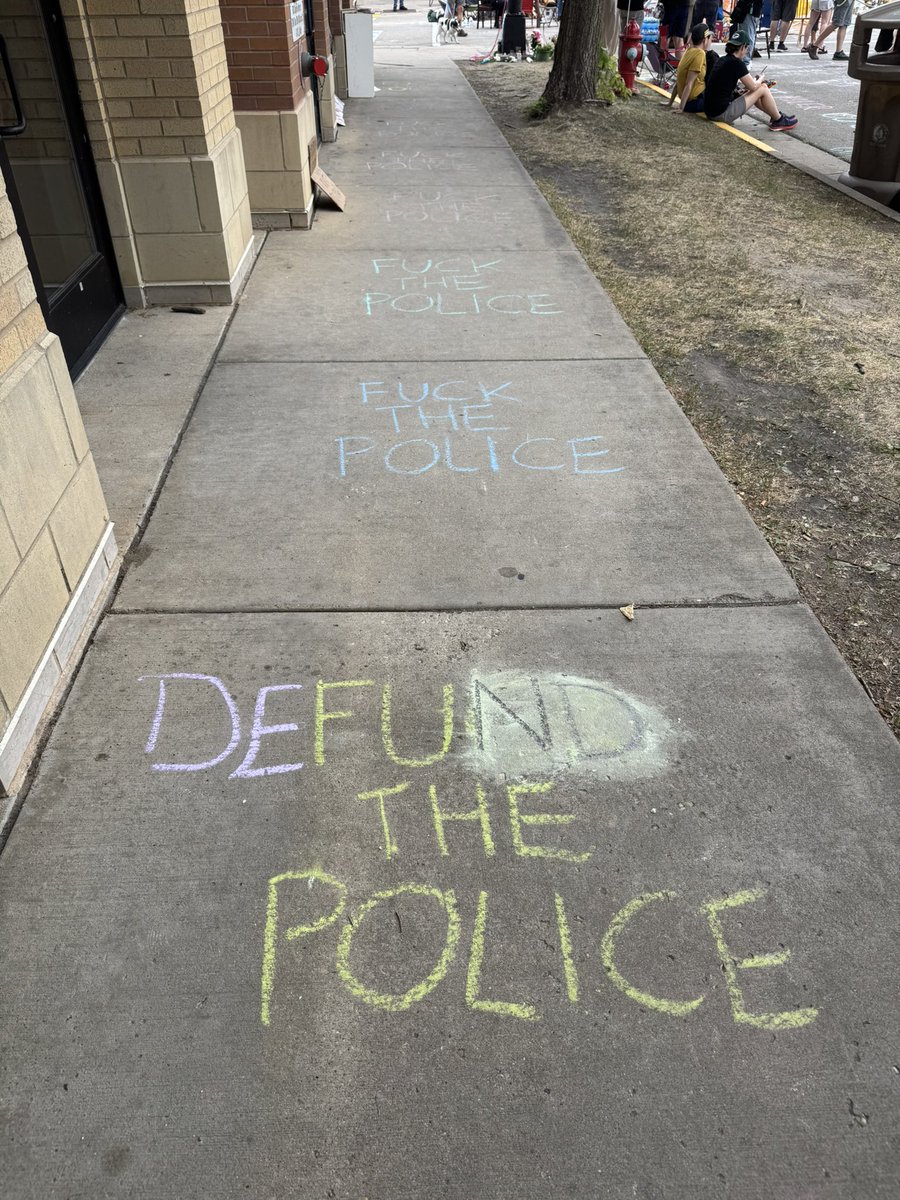 FUCK
THE
POLICE
FUCK
THE
POLICE
FUCK
THE
POLICE
FUCK
THE
POLICE
DEFUND
THE
POLICE